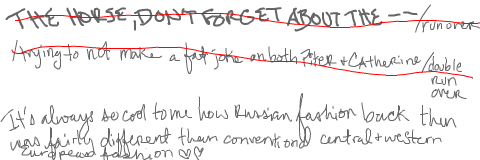 THE HORSE, DON'T FORGET ABOUT THE -- /runover
/trying to not make a fat joke on both Peter + CAtherine /double
RUN
OVER
It's always so cool to me how Russian fashion back then
was fairly different than conventional central + western
European fashion ♡♡